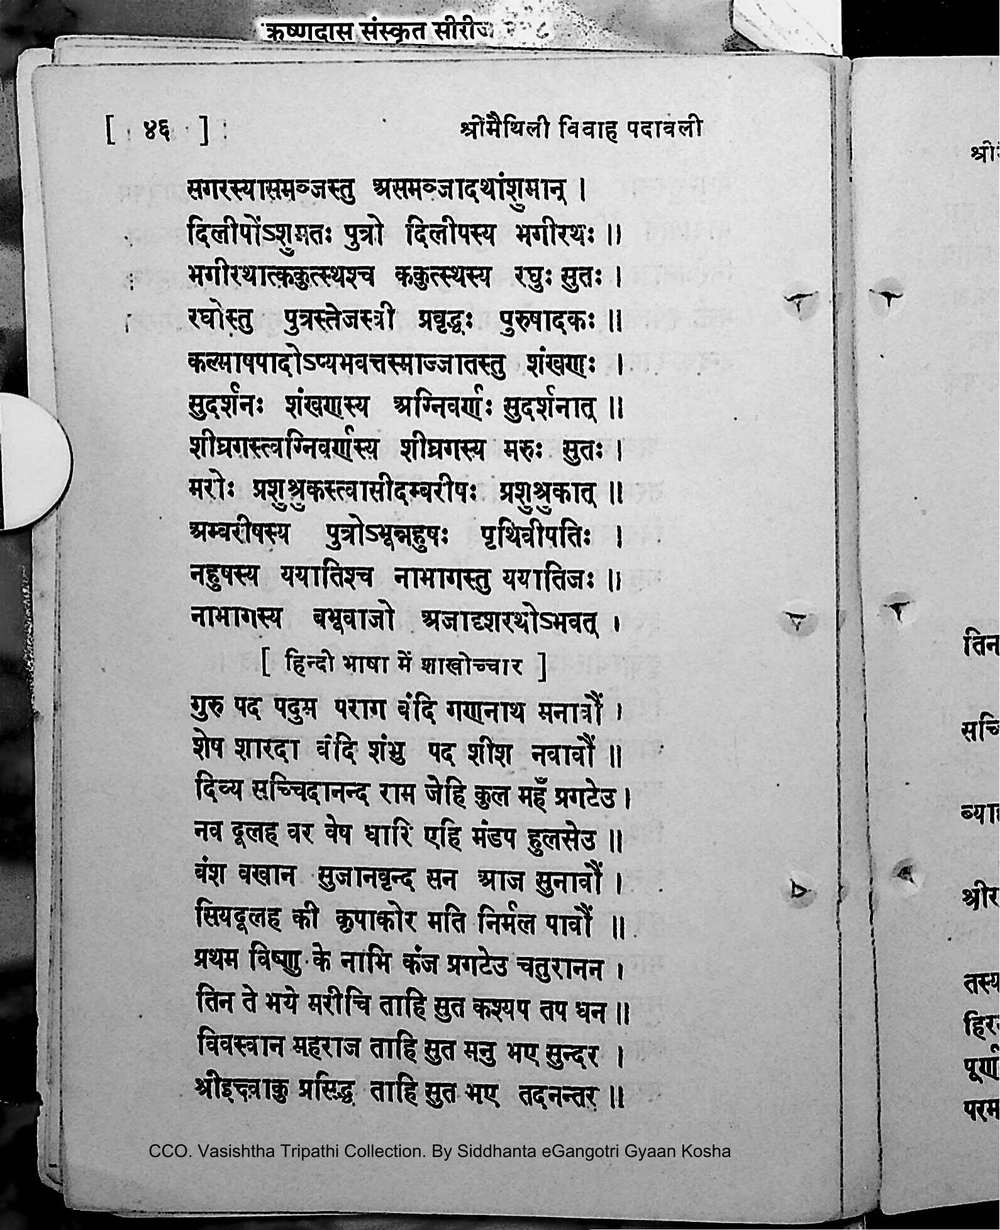 कृष्णदास संस्कृत सीरीज
[ ४६ ] श्रीमैथिली विवाह पदावली
सगरस्यासमञ्जस्तु असमञ्जादथांशुमान् ।
दिलीपोंऽशुमतः पुत्रो दिलीपस्य भगीरथः ॥
भगीरथात्ककुत्स्थश्च ककुत्स्थस्य रघुः सुतः ।
रघोस्तु पुत्रस्तेजस्वी प्रवृद्धः पुरुषादकः ॥
कल्माषपादोऽप्यभवत्तस्माज्जातस्तु शंखणः ।
सुदर्शनः शंखणस्य अग्निवर्णः सुदर्शनात् ॥
शीघ्रगस्त्वग्निवर्णस्य शीघ्रगस्य मरुः सुतः ।
मरोः प्रशुश्रुकस्त्वासीदम्बरीषः प्रशुश्रुकात् ॥
अम्बरीषस्य पुत्रोऽभून्नहुषः पृथिवीपतिः ।
नहुषस्य ययातिश्च नाभागस्तु ययातिजः ॥
नाभागस्य बभूवाजो अजाद्दशरथोऽभवत् ।
[ हिन्दी भाषा में शाखोच्चार ]
गुरु पद पदुम पराग वंदि गणनाथ मनावौं ।
शेष शारदा वंदि शंभु पद शीश नवावौं ॥
दिव्य सच्चिदानन्द राम जेहि कुल महँ प्रगटेउ ।
नव दूलह वर वेष धारि एहि मंडप हुलसेउ ॥
वंश वखान सुजानवृन्द सन आज सुनावौं ।
सियदूलह की कृपाकोर मति निर्मल पावौं ॥
प्रथम विष्णु के नाभि कंज प्रगटेउ चतुरानन ।
तिन ते भये मरीचि ताहि सुत कश्यप तप धन ॥
विवस्वान महराज ताहि सुत मनु भए सुन्दर ।
श्रीइक्ष्वाकु प्रसिद्ध ताहि सुत भए तदनन्तर ॥
CCO. Vasishtha Tripathi Collection. By Siddhanta eGangotri Gyaan Kosha